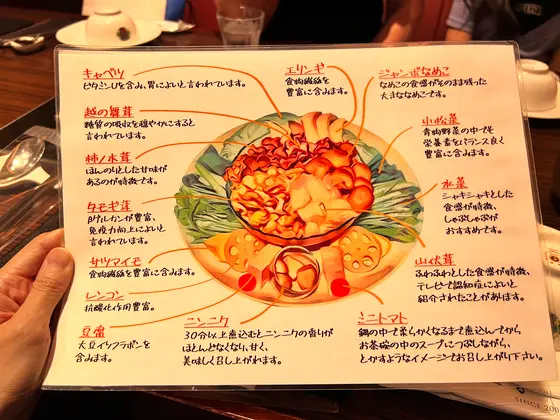 キャベツ
ビタミンUを含み、胃によいと言われています。
越の舞茸
糖質の吸収を穏やかにすると
言われています。
柿ノ木茸
ほんのりとした甘味が
あるのが特徴です。
タモギ茸
βグルカンが豊富、
免疫力向上によいと
言われています。
サツマイモ
食物繊維を豊富に含みます。
レンコン
抗酸化作用豊富。
豆腐
大豆イソフラボンを
含みます。
ニンニク
30分以上煮込むとニンニクの香りが
ほとんどなくなり、甘く、
美味しく召し上がれます。
エリンギ
食物繊維を
豊富に含みます。
ジャンボなめこ
なめこの食感がそのまま残った
大きななめこです。
小松菜
青物野菜の中でも
栄養素をバランス良く
豊富に含みます。
水菜
シャキシャキとした
食感が特徴、
しゃぶしゃぶが
おすすめです。
山伏茸
ふわふわとした食感が特徴、
テレビで認知症によいと
紹介されたことがあります。
ミニトマト
鍋の中で柔らかくなるまで煮込んでから
お茶碗の中のスープにつぶしながら、
とかすようなイメージでお召し上がり下さい。
SINCE